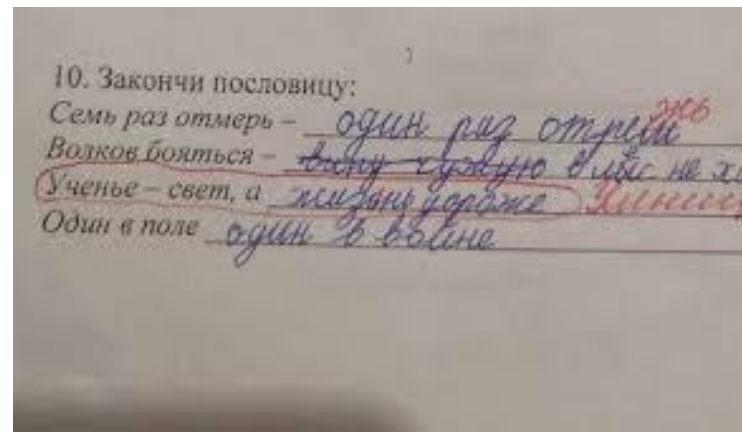 10. Закончи пословицу:
Семь раз отмерь – один раз отрежь
Волков бояться – в лес не хо
Ученье – свет, а жизнь дороже
Один в поле один в войне